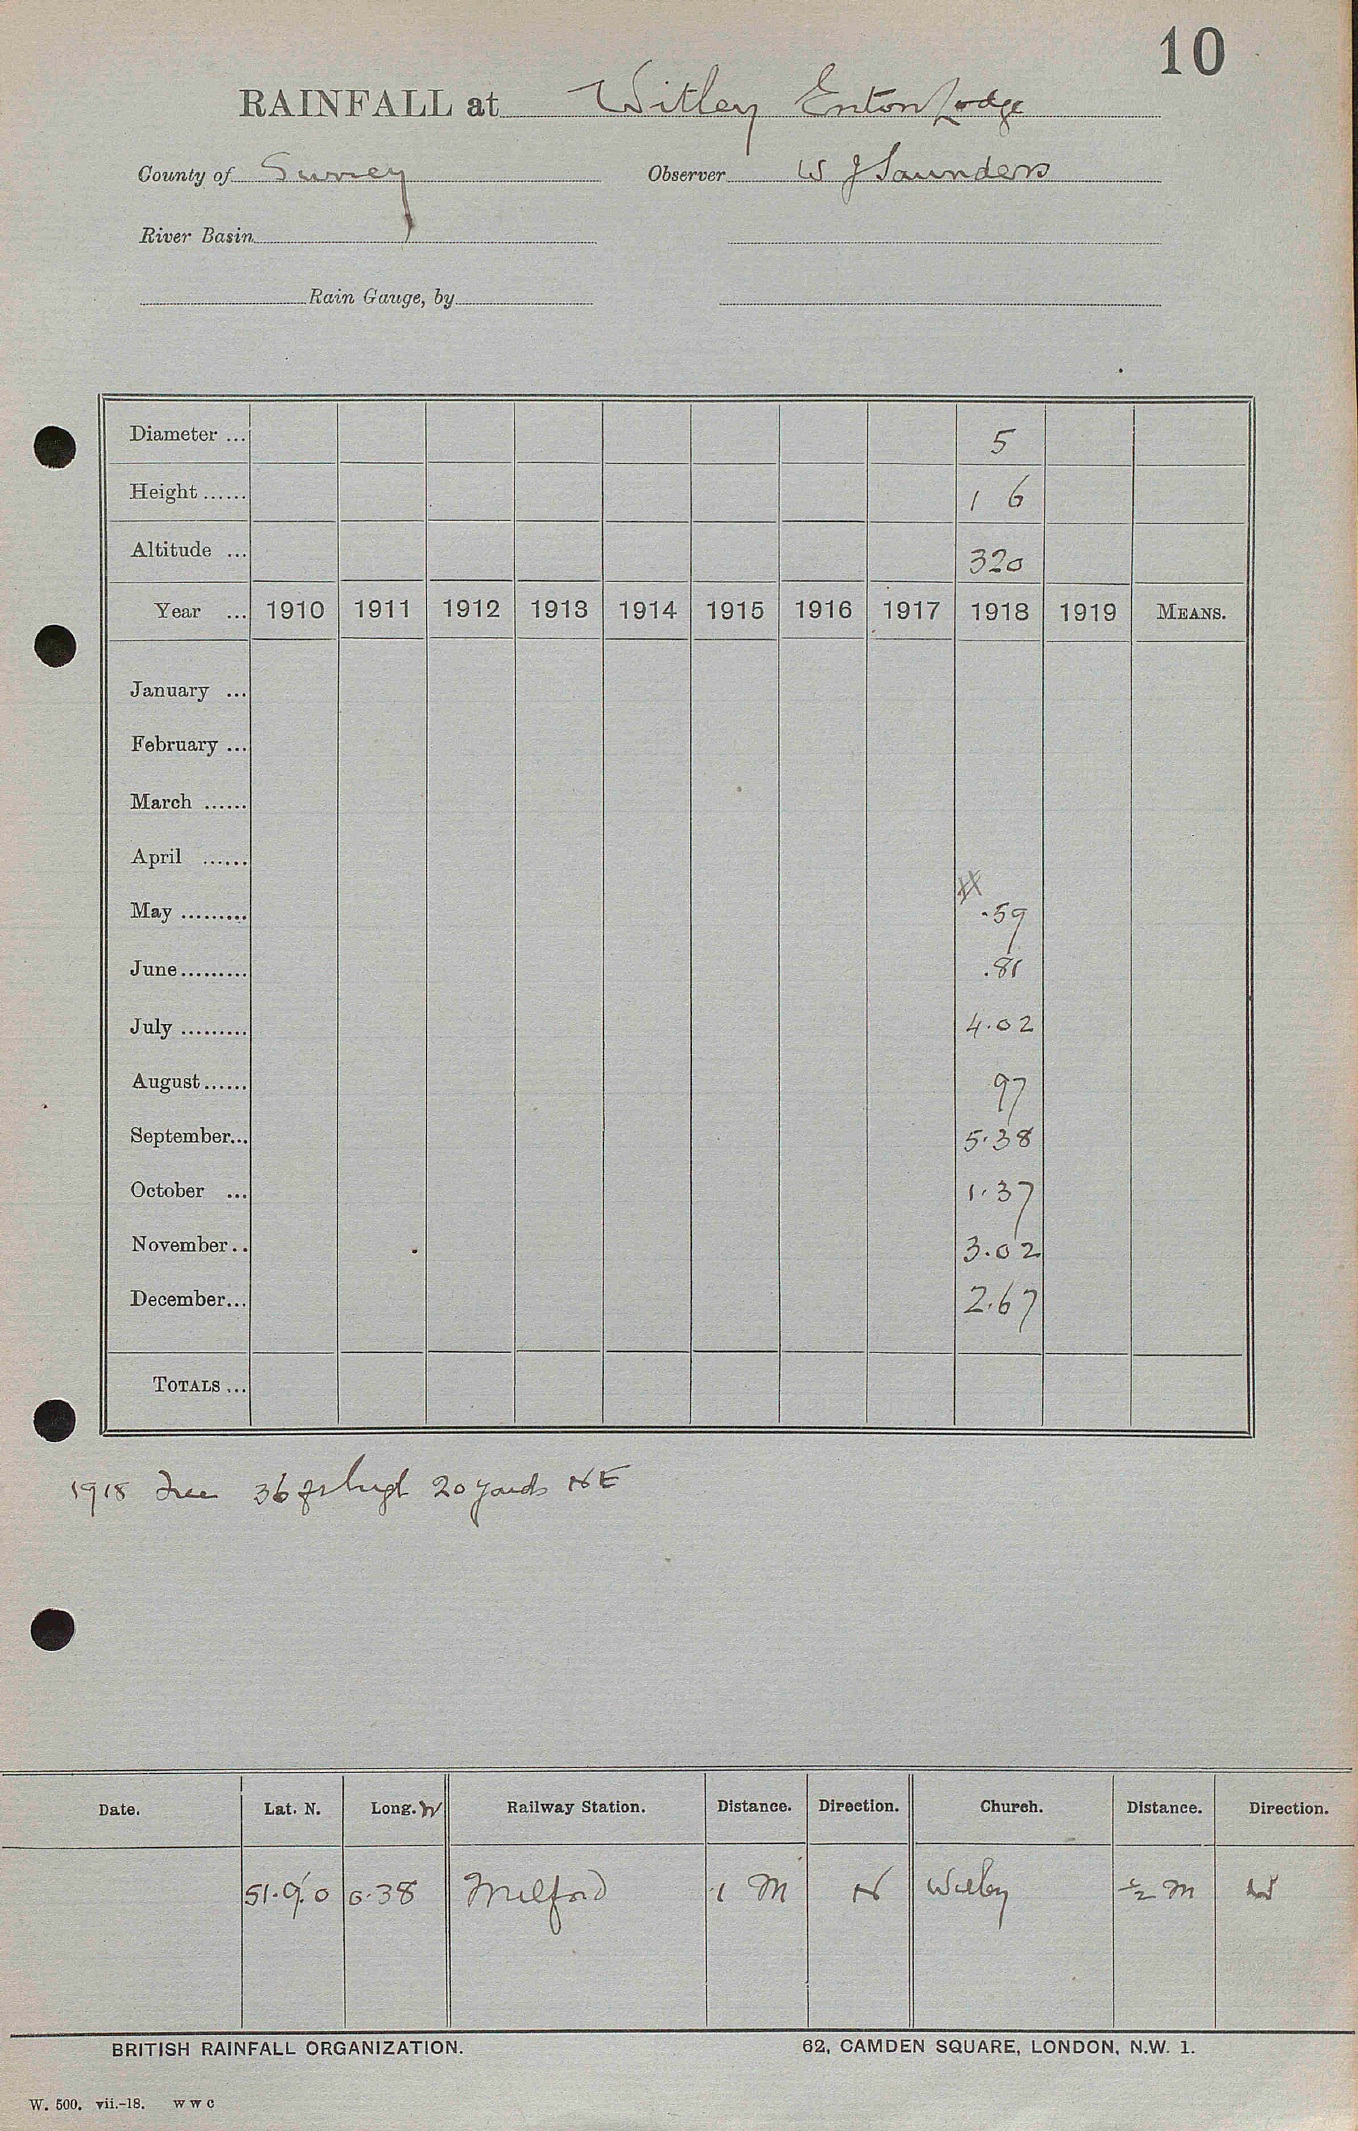 10
RAINFALL at Witley Enton Lodge
County of Surrey Observer W J Saunders
River Basin
Rain Gauge, by
Diameter ... 5
Height ...... 1 6
Altitude ... 320
Year ... 1910 1911 1912 1913 1914 1915 1916 1917 1918 1919 MEANS.
January ...
February ...
March ......
April ......
May ......... .59
June ......... .81
July ......... 4.02
August ...... 97
September... 5.38
October ... 1.37
November .. 3.02
December... 2.67
TOTALS ...
1918 Tree 36 ft high 20 yards NE
Date. Lat. N. Long. W Railway Station. Distance. Direction. Church. Distance. Direction.
51.9.0 0.38 Milford 1 M N Witley ½ M W
BRITISH RAINFALL ORGANIZATION. 62, CAMDEN SQUARE, LONDON, N.W. 1.
W. 500. vii.-18. W W C